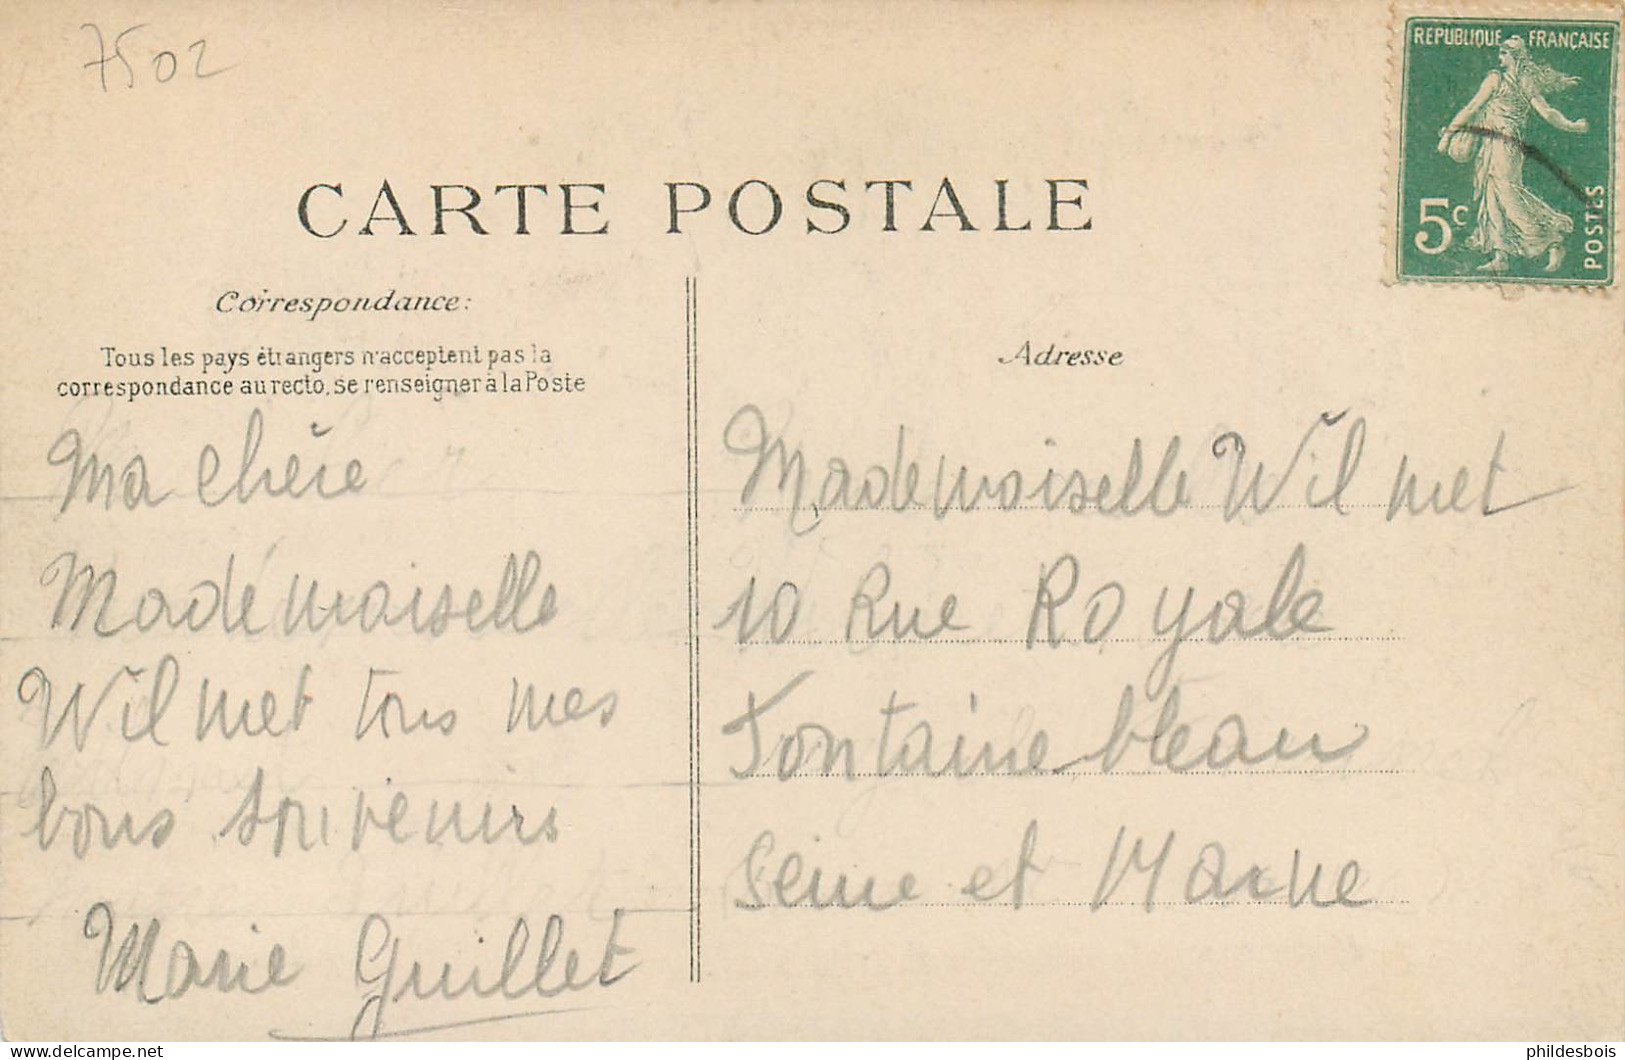 7502
REPUBLIQUE FRANÇAISE
5c
POSTES
CARTE POSTALE
Correspondance:
Tous les pays étrangers n'acceptent pas la
correspondance au recto, se renseigner à la Poste
Ma chère
Mademoiselle
Wilmet tous mes
bons souvenirs
Marie Guillet
Adresse
Mademoiselle Wilmet
10 Rue Royale
Fontainebleau
Seine et Marne
delcampe.net
phildesbois